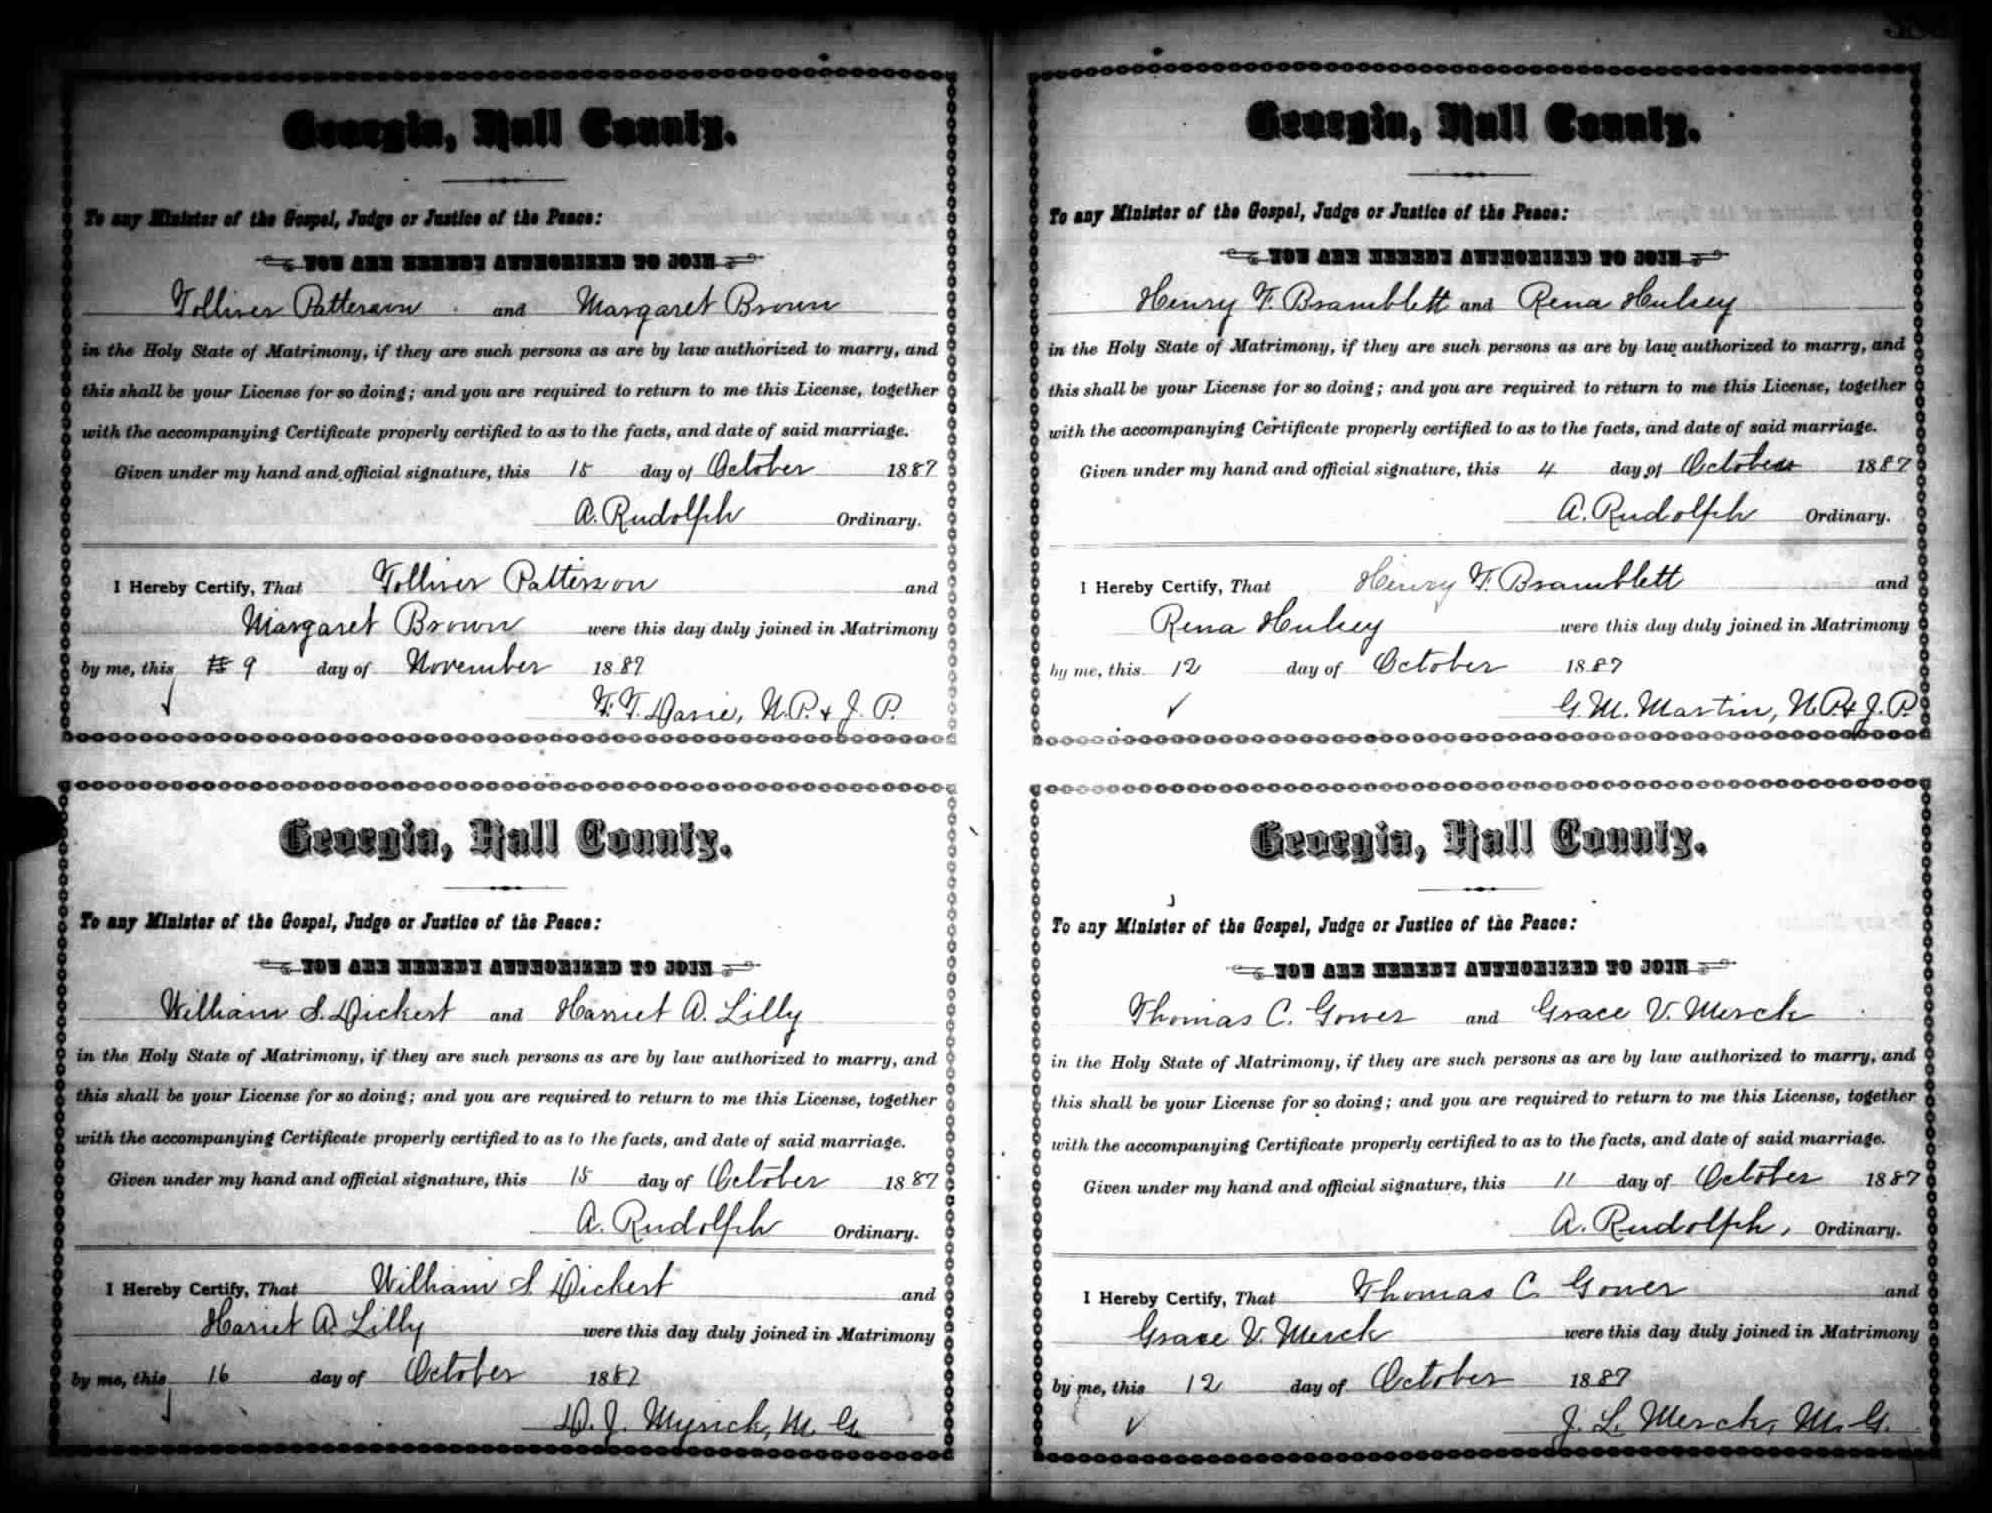 Georgia, Hall County.
To any Minister of the Gospel, Judge or Justice of the Peace:
YOU ARE HEREBY AUTHORIZED TO JOIN
Tolliver Patterson and Margaret Brown
in the Holy State of Matrimony, if they are such persons as are by law authorized to marry, and
this shall be your License for so doing; and you are required to return to me this License, together
with the accompanying Certificate properly certified to as to the facts, and date of said marriage.
Given under my hand and official signature, this 15 day of October 1887
A. Rudolph Ordinary.
I Hereby Certify, That Tolliver Patterson and
Margaret Brown were this day duly joined in Matrimony
by me, this 9 day of November 1887
F. T. Davie, N.P. & J. P.
Georgia, Hall County.
To any Minister of the Gospel, Judge or Justice of the Peace:
YOU ARE HEREBY AUTHORIZED TO JOIN
William S. Dickert and Harriet A. Lilly
in the Holy State of Matrimony, if they are such persons as are by law authorized to marry, and
this shall be your License for so doing; and you are required to return to me this License, together
with the accompanying Certificate properly certified to as to the facts, and date of said marriage.
Given under my hand and official signature, this 15 day of October 1887
A. Rudolph Ordinary.
I Hereby Certify, That William S. Dickert and
Hariet A. Lilly were this day duly joined in Matrimony
by me, this 16 day of October 1887
D. J. Myrick, M. G.
Georgia, Hall County.
To any Minister of the Gospel, Judge or Justice of the Peace:
YOU ARE HEREBY AUTHORIZED TO JOIN
Henry F. Bramblett and Rena Hulsey
in the Holy State of Matrimony, if they are such persons as are by law authorized to marry, and
this shall be your License for so doing; and you are required to return to me this License, together
with the accompanying Certificate properly certified to as to the facts, and date of said marriage.
Given under my hand and official signature, this 4 day of October 1887
A. Rudolph Ordinary.
I Hereby Certify, That Henry F. Bramblett and
Rena Hulsey were this day duly joined in Matrimony
by me, this 12 day of October 1887
G. M. Martin, N.P. & J.P.
Georgia, Hall County.
To any Minister of the Gospel, Judge or Justice of the Peace:
YOU ARE HEREBY AUTHORIZED TO JOIN
Thomas C. Gower and Grace V. Merck
in the Holy State of Matrimony, if they are such persons as are by law authorized to marry, and
this shall be your License for so doing; and you are required to return to me this License, together
with the accompanying Certificate properly certified to as to the facts, and date of said marriage.
Given under my hand and official signature, this 11 day of October 1887
A. Rudolph, Ordinary.
I Hereby Certify, That Thomas C. Gower and
Grace V. Merck were this day duly joined in Matrimony
by me, this 12 day of October 1887
J. L. Merck, M. G.